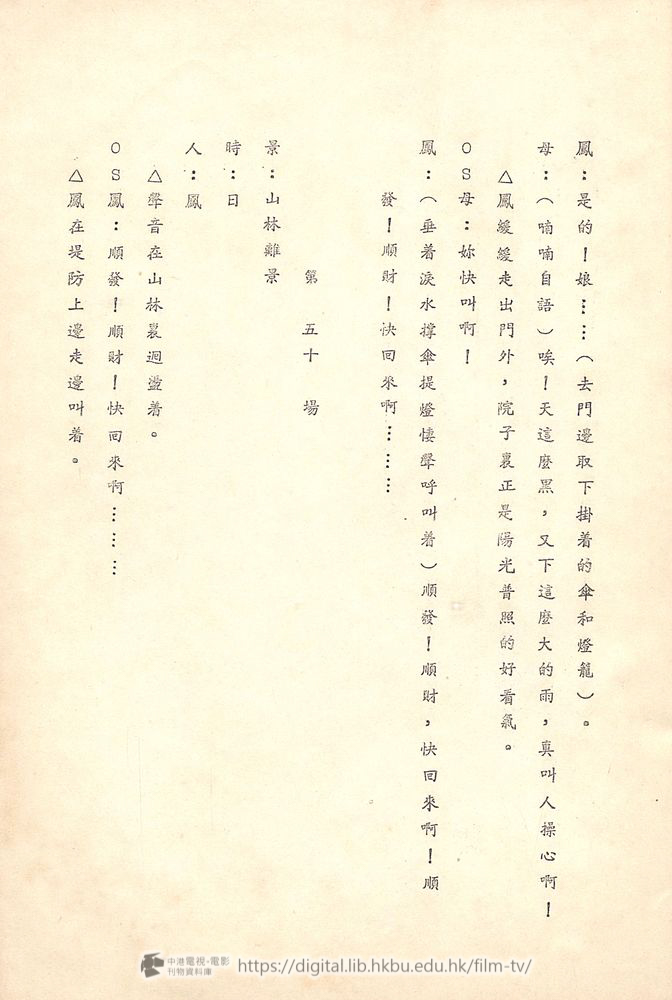 鳳：是的！娘……（去門邊取下掛着的傘和燈籠）。
母：（喃喃自語）唉！天這麼黑，又下這麼大的雨，真叫人操心啊！
△鳳緩緩走出門外，院子裏正是陽光普照的好看氣。
OS母：妳快叫啊！
鳳：（垂着淚水撑傘提燈悽聲呼叫着）順發！順財，快回來啊！順
發！順財！快回來啊………
第五十場
景：山林雜景
時：日
人：鳳
△聲音在山林裏迴盪着。
OS鳳：順發！順財！快回來啊………
△鳳在堤防上邊走邊叫着。
中港電視·電影
刊物資料庫
https://digital.lib.hkbu.edu.hk/film-tv/